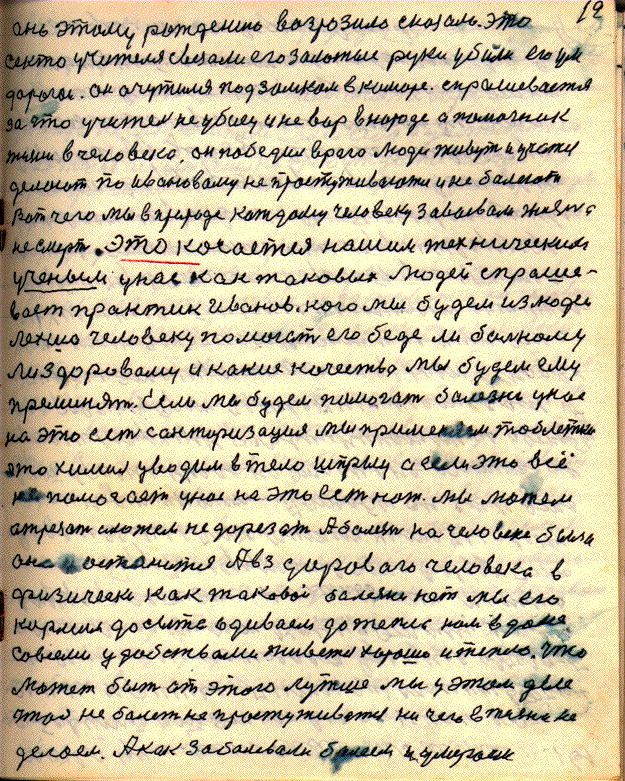 19
ень этому рождению возрозило сказаль. Это
секто учителя свезали его залотые руки убили его ум
дорогой. он очутился подзамком в каморе. спрашивается
за что учител не убиец и не вор внароде а помочник
жизни в человека, он победил врага люди живут и участи
делают по Ивановому не простуживаются и не балеют
Вот чего мы в природе каждому человеку заваевали жизнь а
не смерть. Это косается нашим техническим
ученым унас как таковых людей спраше-
вает практик Иванов. кого мы будем из люде
лахшо человеку помогат его беде ли болному
ли здоровому и какие качества мы будем ему
преминят. Если мы будем помогат болезни унас
на это ест санторизация мы применяем таблетки
это химия уводим в тело шприцы а если это всё
не помогает унас на это ест нож. мы можем
отрезат можем не дорезат А болезн на человеке была
она и останится А вз дороваго человека в
физически как таковой болезни нет мы его
кормим досыта одиваем до тепла ном в доме
совсеми удобствами живёт хорошо и тепло. Что
может быт от этого лутше мы у этом деле
чтоб не болет не простуживатся ни чего в жизни не
делаем. А как заболевали болеем и умераем